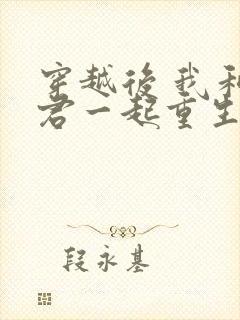 穿越後我和
君一起重生
段永基